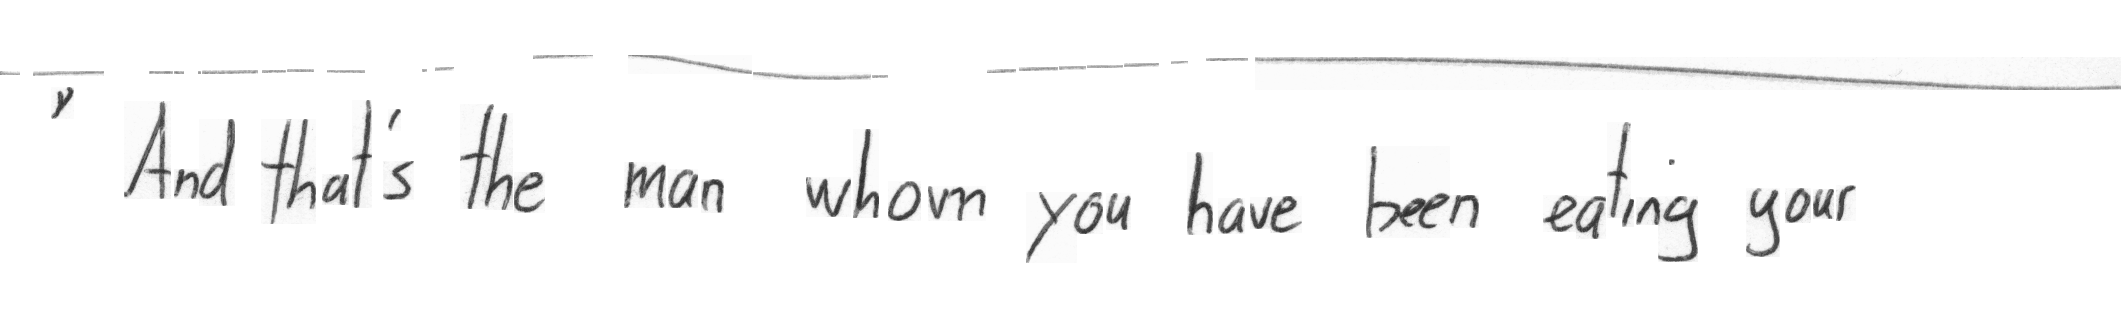 " And that's the man whom you have been eating your